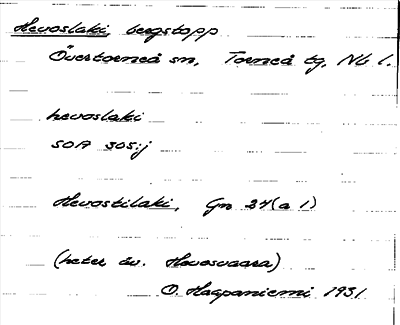 Hevoslaki, bergstopp
Övertorneå sn, Torneå tg, Nb l.
hevoslaki
SOA 305:j
Hevostilaki, Gn 24(a 1)
(heter äv. Hevosvaara)
O. Haapaniemi 1931